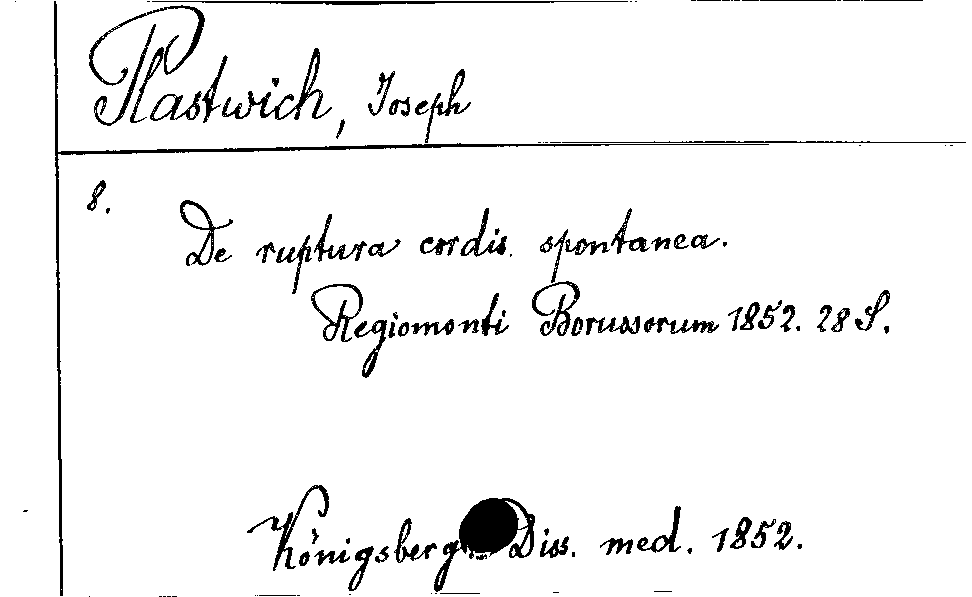 Plastwich, Joseph
8.
De ruptura cordis spontanea.
Regiomonti Borussorum 1852. 28 S.
Königsberg Diss. med. 1852.